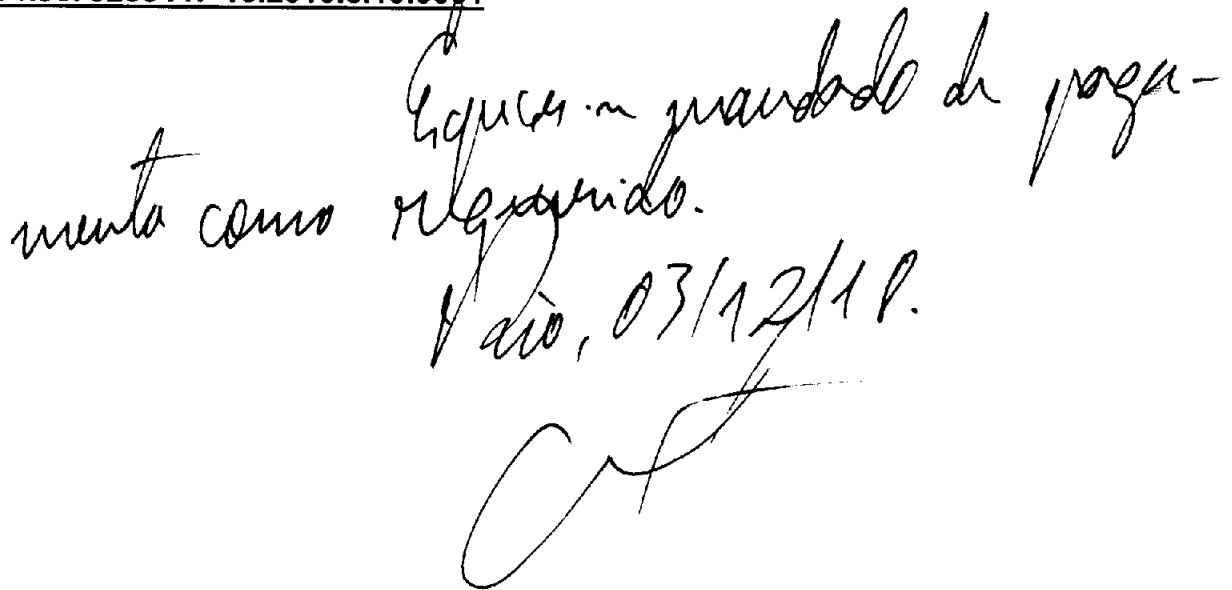 Expeça-se mandado de paga-
mento como requerido.
Rio, 03/12/18.